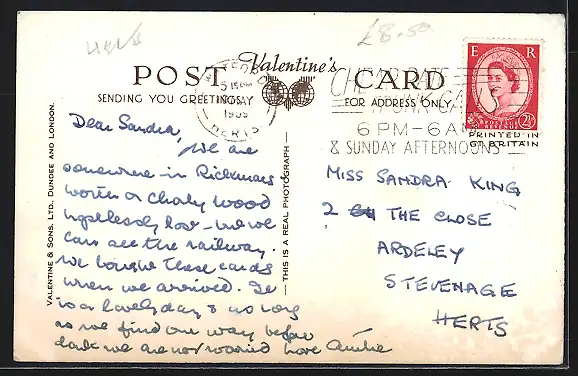 Herts
£8.50
Valentine's
POST CARD
SENDING YOU GREETINGS
FOR ADDRESS ONLY
WATFORD
5 15 PM
MAY
1959
HERTS
CHEAP RATE
6 PM - 6 AM
& SUNDAY AFTERNOONS
E R
POSTAGE REVENUE
2½
PRINTED IN
GT BRITAIN
VALENTINE & SONS, LTD., DUNDEE AND LONDON.
THIS IS A REAL PHOTOGRAPH
Dear Sandra,
We are
somewhere in Rickmans
worth or Chorley Wood
hopelessly lost - but we
can see the railway.
We bought these cards
when we arrived. It
is a lovely day & as long
as we find our way before
dark we are not worried Love
MISS SANDRA KING
2 THE CLOSE
ARDELEY
STEVENAGE
HERTS